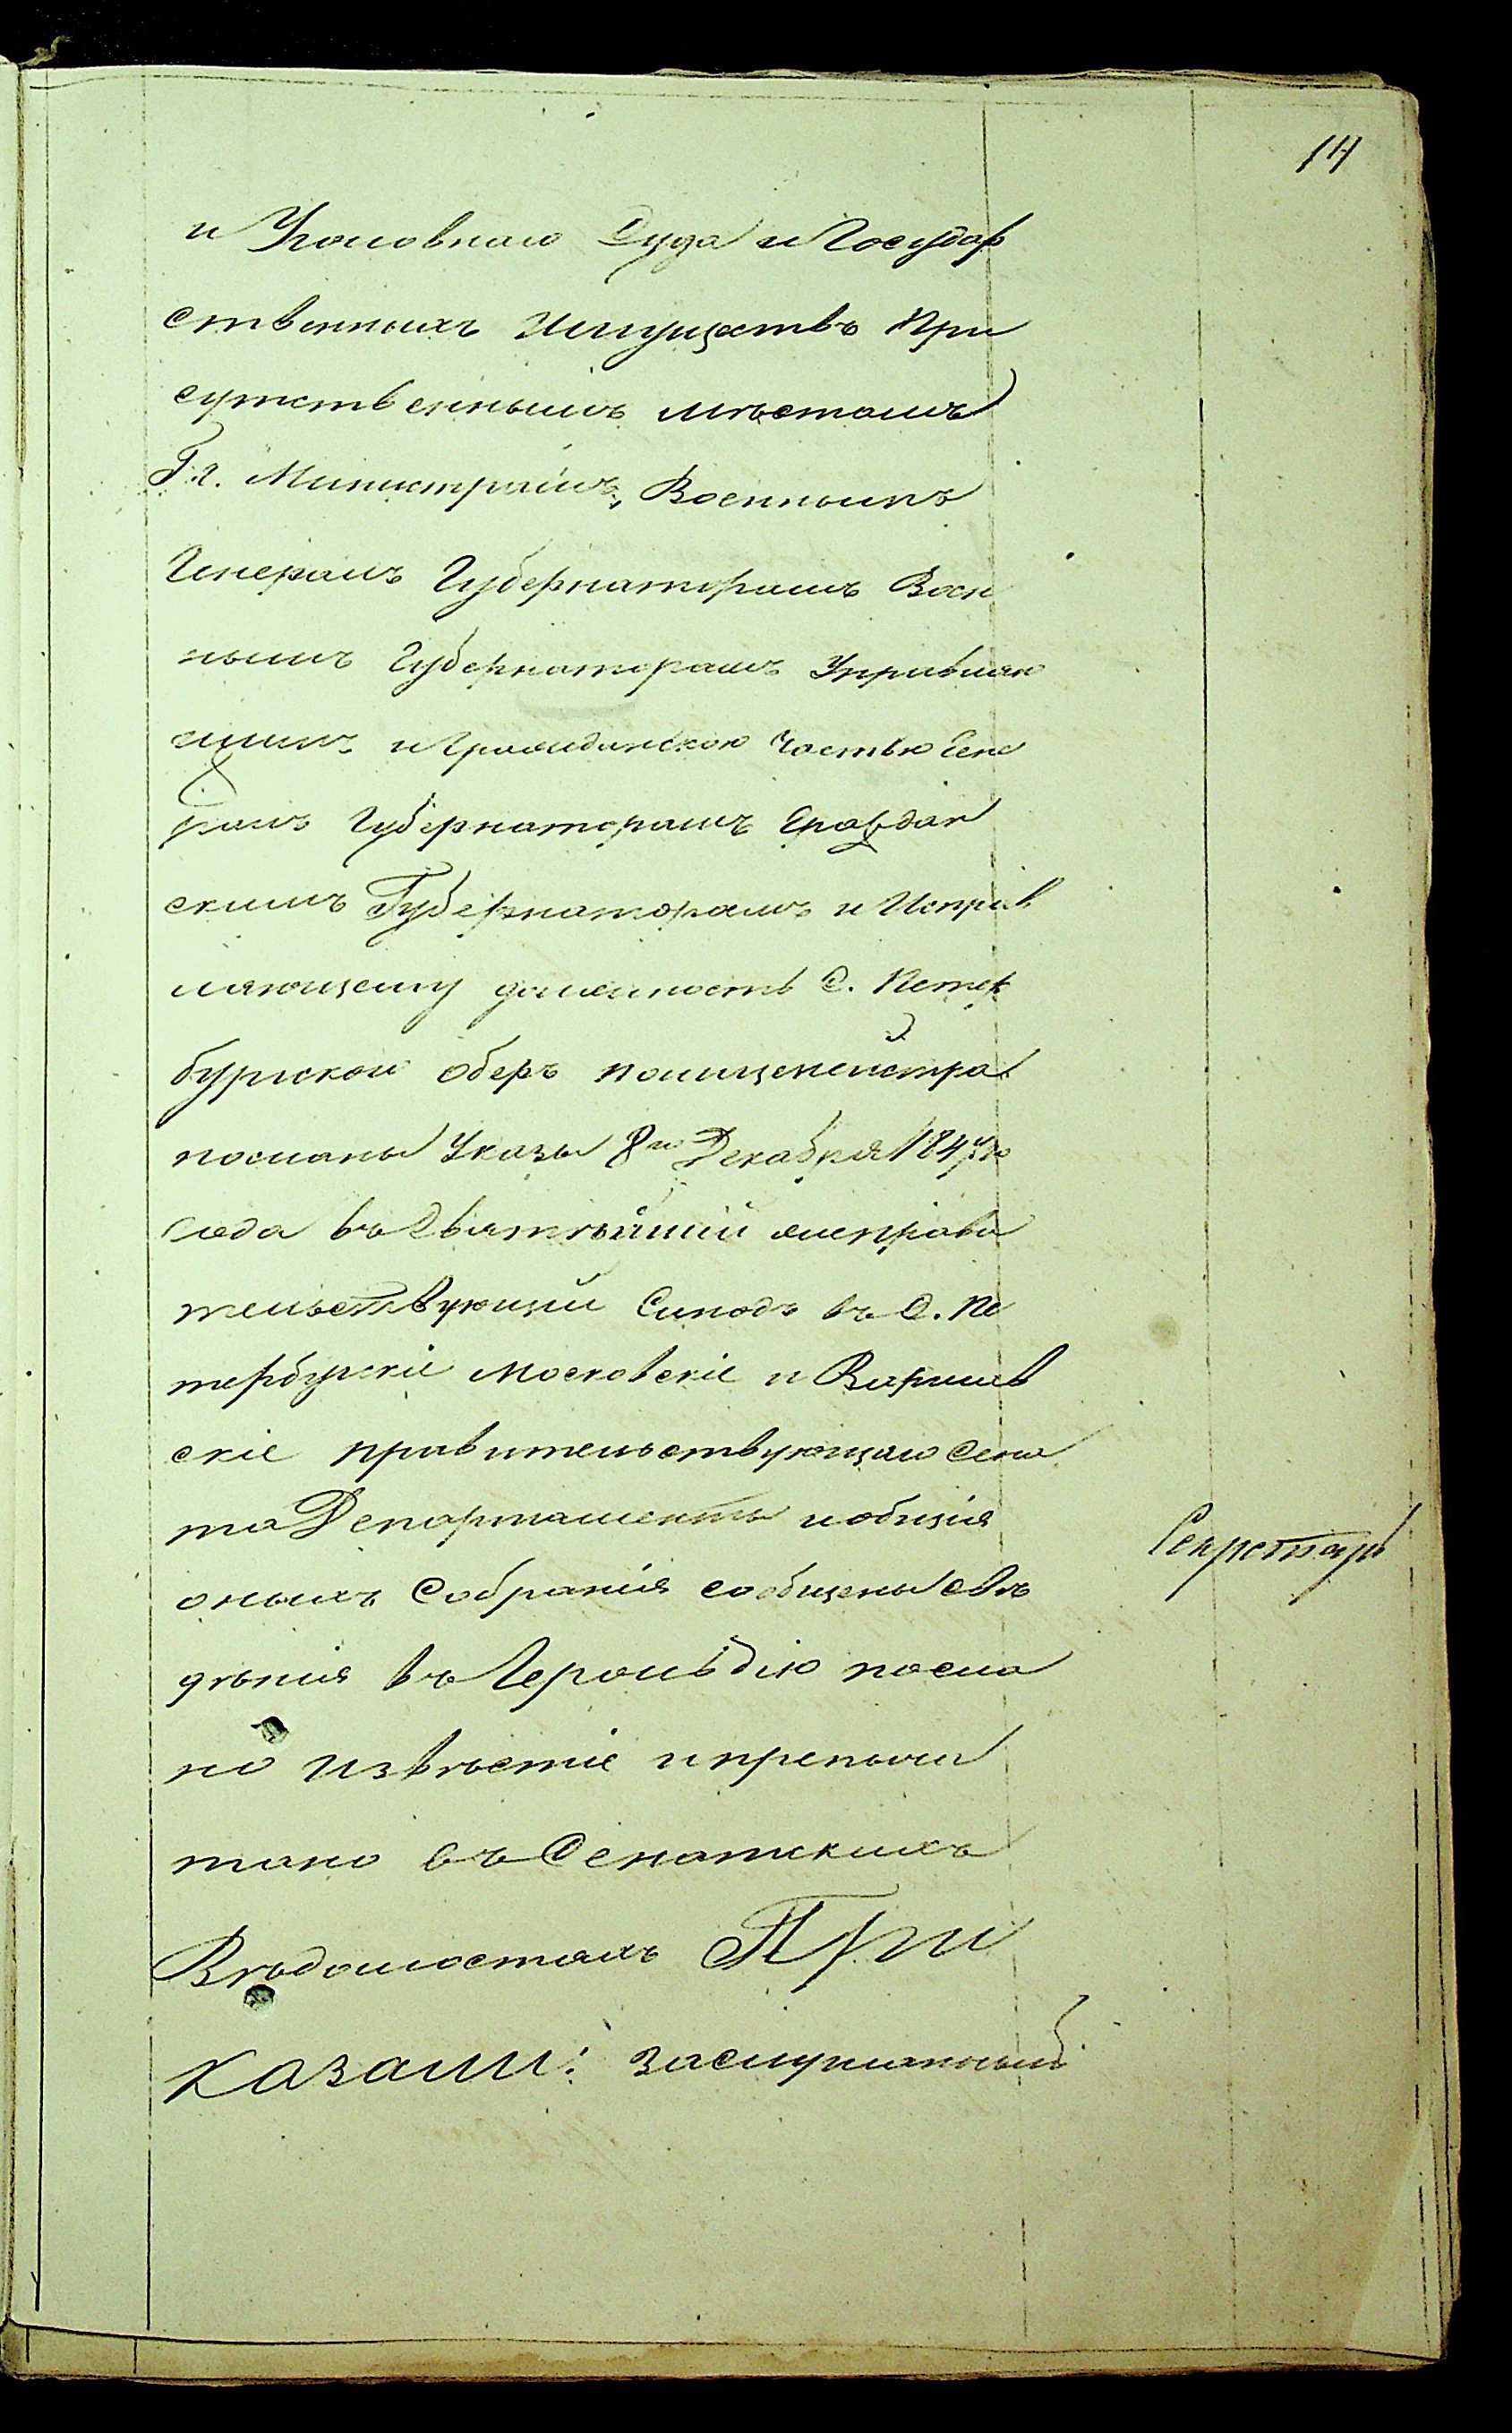 14
и Уголовнаго Суда и Государ
ственныхъ Имуществъ При
сутственнымъ мѣстамъ
Г.г. Министрамъ, Военнымъ
Генералъ Губернаторамъ Воен
нымъ Губернаторамъ Управляю
щимъ и Гражданскою Частью Гене
ралъ Губернаторамъ Граждан
скимъ Губернаторамъ и Исправ
ляющему должность С. Петер
бургскаго Оберъ полицеймейстра
посланы Указы 8го Декабря 184 го
года въ Святѣйший же прави
тельствующий Синодъ въ С. Пе
тербургскіе Московскіе и Варшав
скіе правительствующаго Сена
та Департаменты и общія
оныхъ Собранія сообщены свѣ
дѣнія въ Герольдію посла
но извѣстіе и припеча
тано въ Сенатскихъ
Вѣдомостяхъ При
казали: заслушанный
Секретарь